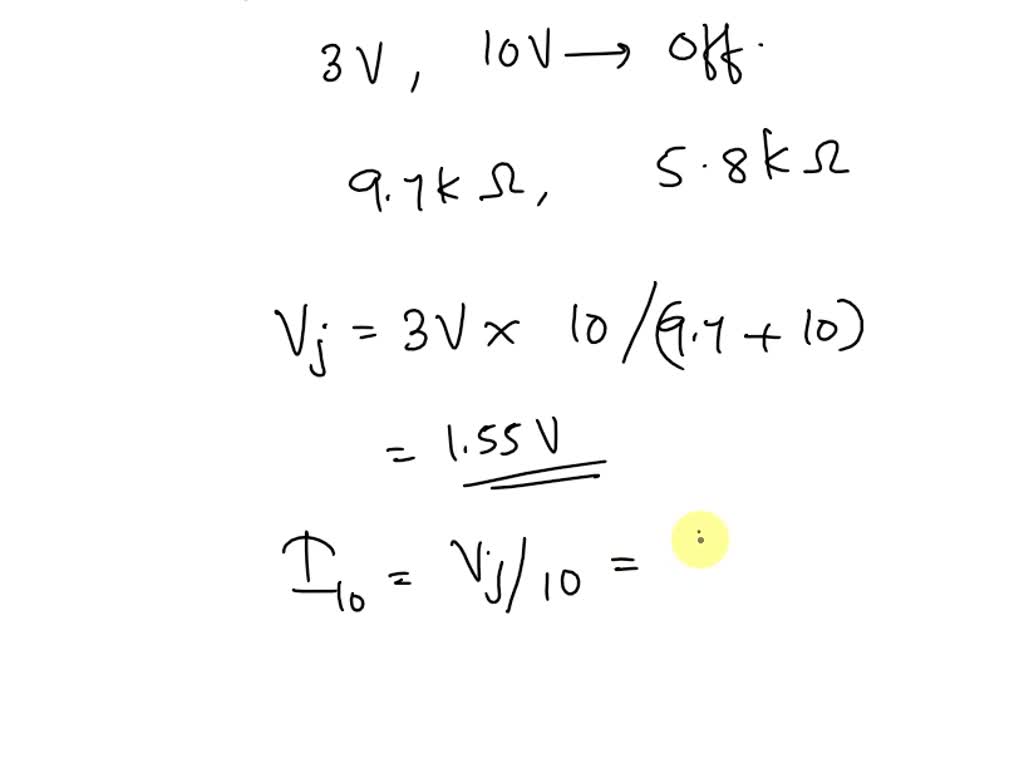 3V, 10V → Off.
9.7kΩ, 5.8kΩ
Vj = 3V × 10/(9.7 + 10)
= 1.55V
I10 = Vj/10 =